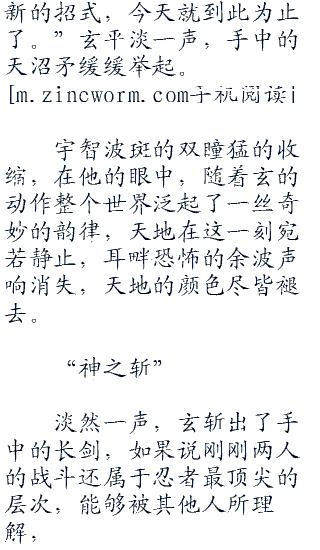 新的招式，今天就到此为止
了。”玄平淡一声，手中的
天沼矛缓缓举起。
[m.zincworm.com手机阅读]
宇智波斑的双瞳猛的收
缩，在他的眼中，随着玄的
动作整个世界泛起了一丝奇
妙的韵律，天地在这一刻宛
若静止，耳畔恐怖的余波声
响消失，天地的颜色尽皆褪
去。
“神之斩”
淡然一声，玄斩出了手
中的长剑，如果说刚刚两人
的战斗还属于忍者最顶尖的
层次，能够被其他人所理
解，